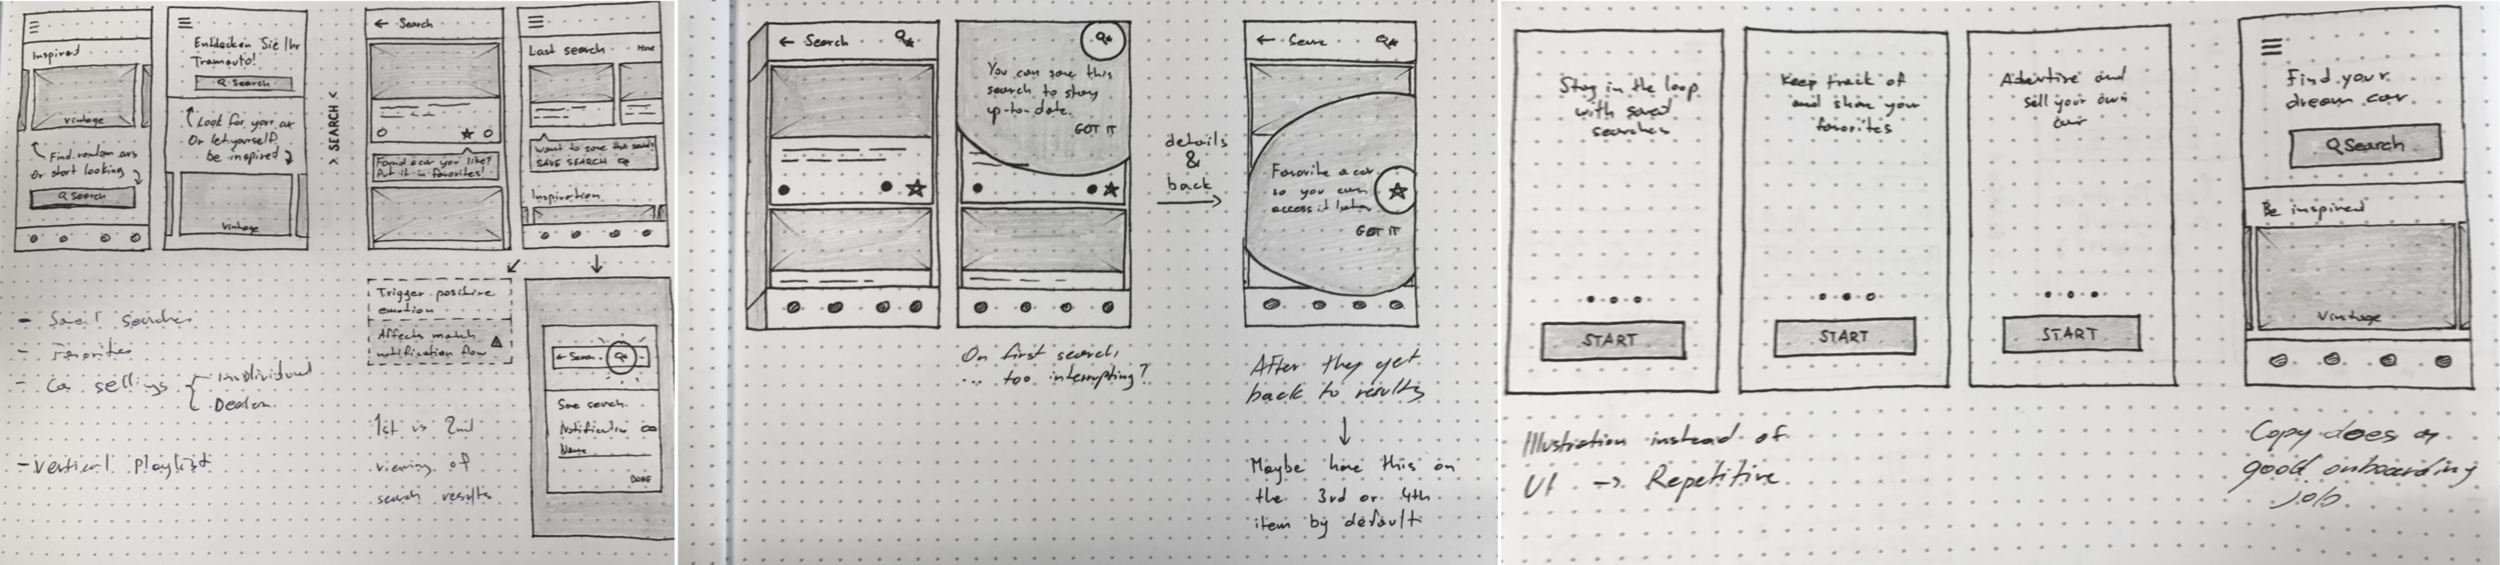 Inspired
Vintage
Find random cars
Or start looking
Search
Entdecken Sie Ihr
Tramauto!
Search
Look for your car
Or let yourself
be inspired
Vintage
> SEARCH <
← Search
Found a car you like?
Put it in favorites!
Last search
More
Want to save this search?
SAVE SEARCH
Inspiration
Trigger positive
emotion
Affects match
notification flow
← Search
Save search
Notification
Name
DONE
- Saved searches
- Favorites
- Car sellings { Individual
Dealer
- Vertical playlist
1st vs 2nd
viewing of
search results
← Search
You can save this
search to stay
up-to-date.
GOT IT
On first search,
... too interrupting?
details
&
back
←
Favorite a car
so you can
access it later
GOT IT
After they get
back to results
↓
Maybe have this on
the 3rd or 4th
item by default
Stay in the loop
with saved
searches
START
Keep track of
and share your
favorites
START
Advertise and
sell your own
car
START
Illustration instead of
UI -> Repetitive
Find your
dream car
Search
Be inspired
Vintage
Copy does a
good onboarding
job